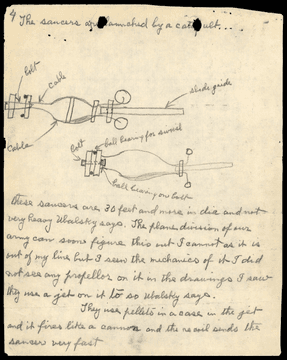 4 The saucers are launched by a catapult...
bolt
cable
slide guide
Cable
bolt
ball bearing for swivel
ball bearing on bolt
These saucers are 30 feet and more in dia and not
very heavy Ubalsky says. The plane division of our
army can some figure this out I cannot as it is
out of my line but I seen the mechanics of it I did
not see any propellor on it in the drawings I saw
they use a jet on it to so Ubalsky says.
They use pellets in a case in the jet
and it fires like a cannon and the recoil sends the
saucer very fast